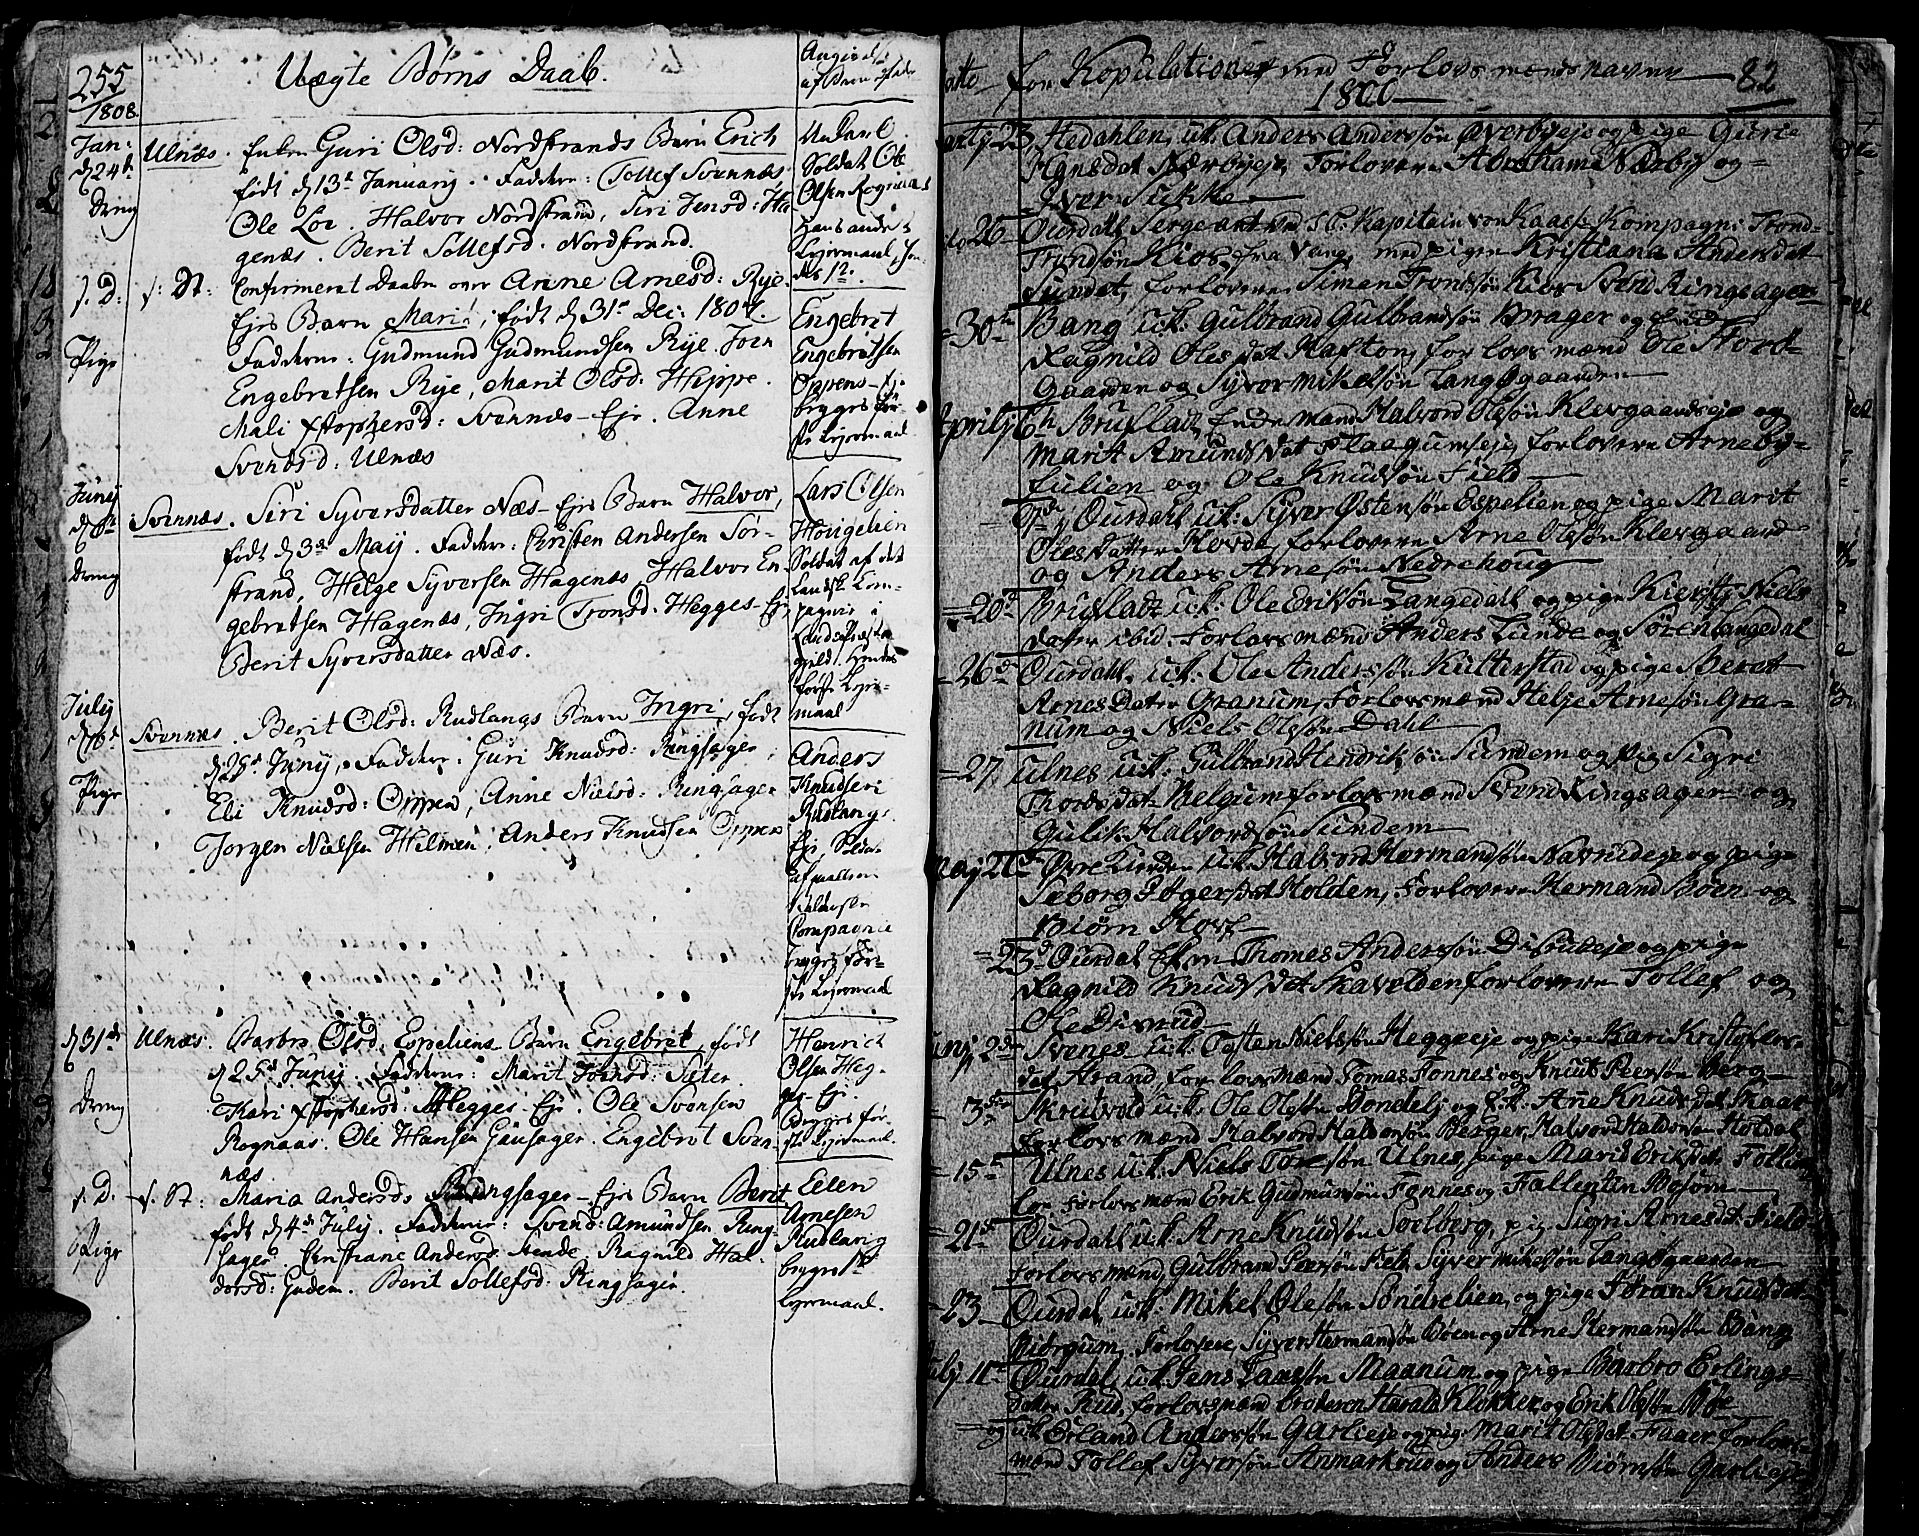 255
Uægte Børns Daab.
Angivelse
af Barnefader
1808.
Jan:
d 24de
Dreng
Ulnæs. Enken Guri Olsd: Nordstrands Barn Erich
født d 13de January. Faddere: Tollef Svennæs
Ole Loe. Halvor Nordstrand, Siri Jensd: Ha
genæs. Berit Tollefsd. Nordstrand.
Soldat Ole
Olsen Rognaas
Hans andet
Lejermaal, hen
des 1te.
s. D.
Pige
s: St: Confirmeret Daaben over Anne Arnesd: Rye-
Ejes Barn Mari, født d 31te Dec: 1807.
Faddere: Gudmund Gudmundsen Rye. Joen
Engebretsen Rye, Marit Olsd: Hippe.
Mali Xstophersd: Svennæs-Eje. Anne
Svendsd: Ulnæs
Engebret
Engebretsen
Oppens-Ej.
begges før-
ste Lejermaal
Juny
Dreng
Svennæs. Siri Syversdatter Næs-Ejes Barn Halvor,
født d 3de May. Faddere: Christen Andersen Sør-
strand, Helge Syversen Hagenæs, Halvor En
gebretsen Hagenæs, Ingri Tronsd: Hegges-Eje
Berit Syversdatter Næs.
Lars Olsen
Hougelien
Soldat af det
Landsk Com-
pagnie i
første Lejer-
maal
July
Pige
Svennæs. Berit Olsd: Rudlangs Barn Ingri, født
Juny. Faddere: Guri Knudsd: Ringsager,
Eli Knudsd: Oppen, Anne Nielsd: Ringsager
Jorgen Nielsen Helmen, Anders Knudsen Oppen
Anders
Knudsen
Rudlangs
Eje. Soldat
Compagnie
Begges før-
ste Lejermaal
d 31te
Dreng
Ulnæs. Barbro Olsd: Espeliens Barn Engebret, født
d 25de Juny. Faddere: Marit Joensd: Sæter.
Kari Xstophersd: Hegges-Eje. Ole Svensen
Rognaas. Ole Hansen Gausager. Engebret Sven-
næs.
Henrich
Olsen Heg-
ges-Eje.
Begges før-
ste Lejermaal.
s. D.
Pige
s. St: Maria Andersd: Ringsager-Ejes Barn Berit
født d 4de July. Faddere: Svend Amundsen Ring-
sager. Andersd. Stende. Ragnild Hal-
dorsd: Gudem. Berit Tollefsd: Ringsager.
Arnesen
Rudlang
begges 1ste
Lejermaal.
for Kopulationer med Forlovsmænds navne 82
1800
23 Hedahlen, u.k. Anders Anderssøn Øverbyeje og pige Gurie
Hansdat Nærbyeje, Forlovere Abraham Nærby og
Iver Sukke
26 Ourdahl Sergeant ved Kapitain von Kaas Kompagn: Trond
Trondsøn Kios, fra Vang, med pigen Kristiana Andersdat
Sundet, forlovere Simen Trondsøn Kios Svend Ringsager
30te Bang u.k: Gulbrand Gulbrandsøn Brager og
Ragnild Olesdat Hafton, forlovsmænd Ole Nord-
Gaarden og Syver Mikelsøn Langgaarden
April 6te Brufladt, Enke mand Halvord Olesøn Klevgaardseje og
Marit Amundsdat Flaegumseje, forlovere Arne By-
Lulien og Ole Knudsøn Field
Ourdahl u.k: Syver Østensøn Espelien og pige Marit
Olesdatter Hovde, forlovere Arne Olesøn Klevgaard
og Anders Arnesøn Nedrehoug
20de Brufladt u.k: Ole Eriksøn Langedahl og pige Kiersti Niels
datter ibid. Forlovsmænd Anders Lunde og Søren Langedal
26de Ourdahl, u.k: Ole Anderssøn Kulterstad og pige Beret
Arnesdatter Granum, Forlovsmænd Helje Arnesøn Gra-
num og Niels Olesøn Dahl
27 Ulnes u.k: Gulbrand Hendriksøn Sundem og pig Sigri
Thordsdat. Belgum forlovsmænd Svend Ringsager og
Gulik Halvordsøn Sundem
Maj Øvre Lirden u.k. Halvord Hermandsøn Navrudeje og pige
Seborg Holden, Forlovere Hermand Bøen og
Biørn Hove
23d Ourdal Thomas Anderssøn Disrudeje og pige
Ragnild Knudsdat Skavelden forlovere Tollef og
Ole Disrud
2de Svenes u.k: Tosten Nielssøn Heggeeje og pige Kari Kristofers
dat. Strand, forlovsmænd Tomas Fønnes og Knut Peersøn Berg
3de Skrutvold u.k: Ole Olesøn Bondelj og E.k. Ane Knudsdat Skaar
forlovsmænd Halvord Haldorsøn Berger, Halvord Haldorsøn Holdal
15de Ulnes u.k. Niels Toresøn Ulnes, pige Maris Eriksdat. Follin
forlovsmænd Erik Gudmunsøn Fønnes og Fallentin Bosørn
21de Ourdahl u.k: Arne Knudsøn Soelberg, pig. Sigri Arnesdat Field
Forlovsmænd Gulbrand Peersøn Field, Syver Mikelsøn Langgaarden
23 Ourdal, u.k. Mikel Olesøn Søndrelien, og pige Jøran Knudsdat
Biørgum, Forlovere, Syver Hermandsøn Bøen og Arne Hermandsøn Bang
11te Ourdal u.k. Jens Maanum og pige Barbro Erlings-
datter Rud, forlovsmænd Broderen Harald Klokker og Erik Olesøn Bøe
og u.k. Erland Anderssøn Garlieje og pig. Marit Olesdat Faaer, forlovs-
mænd Tollef Syversøn Anmarkrud og Anders Biørnsøn Garlieje